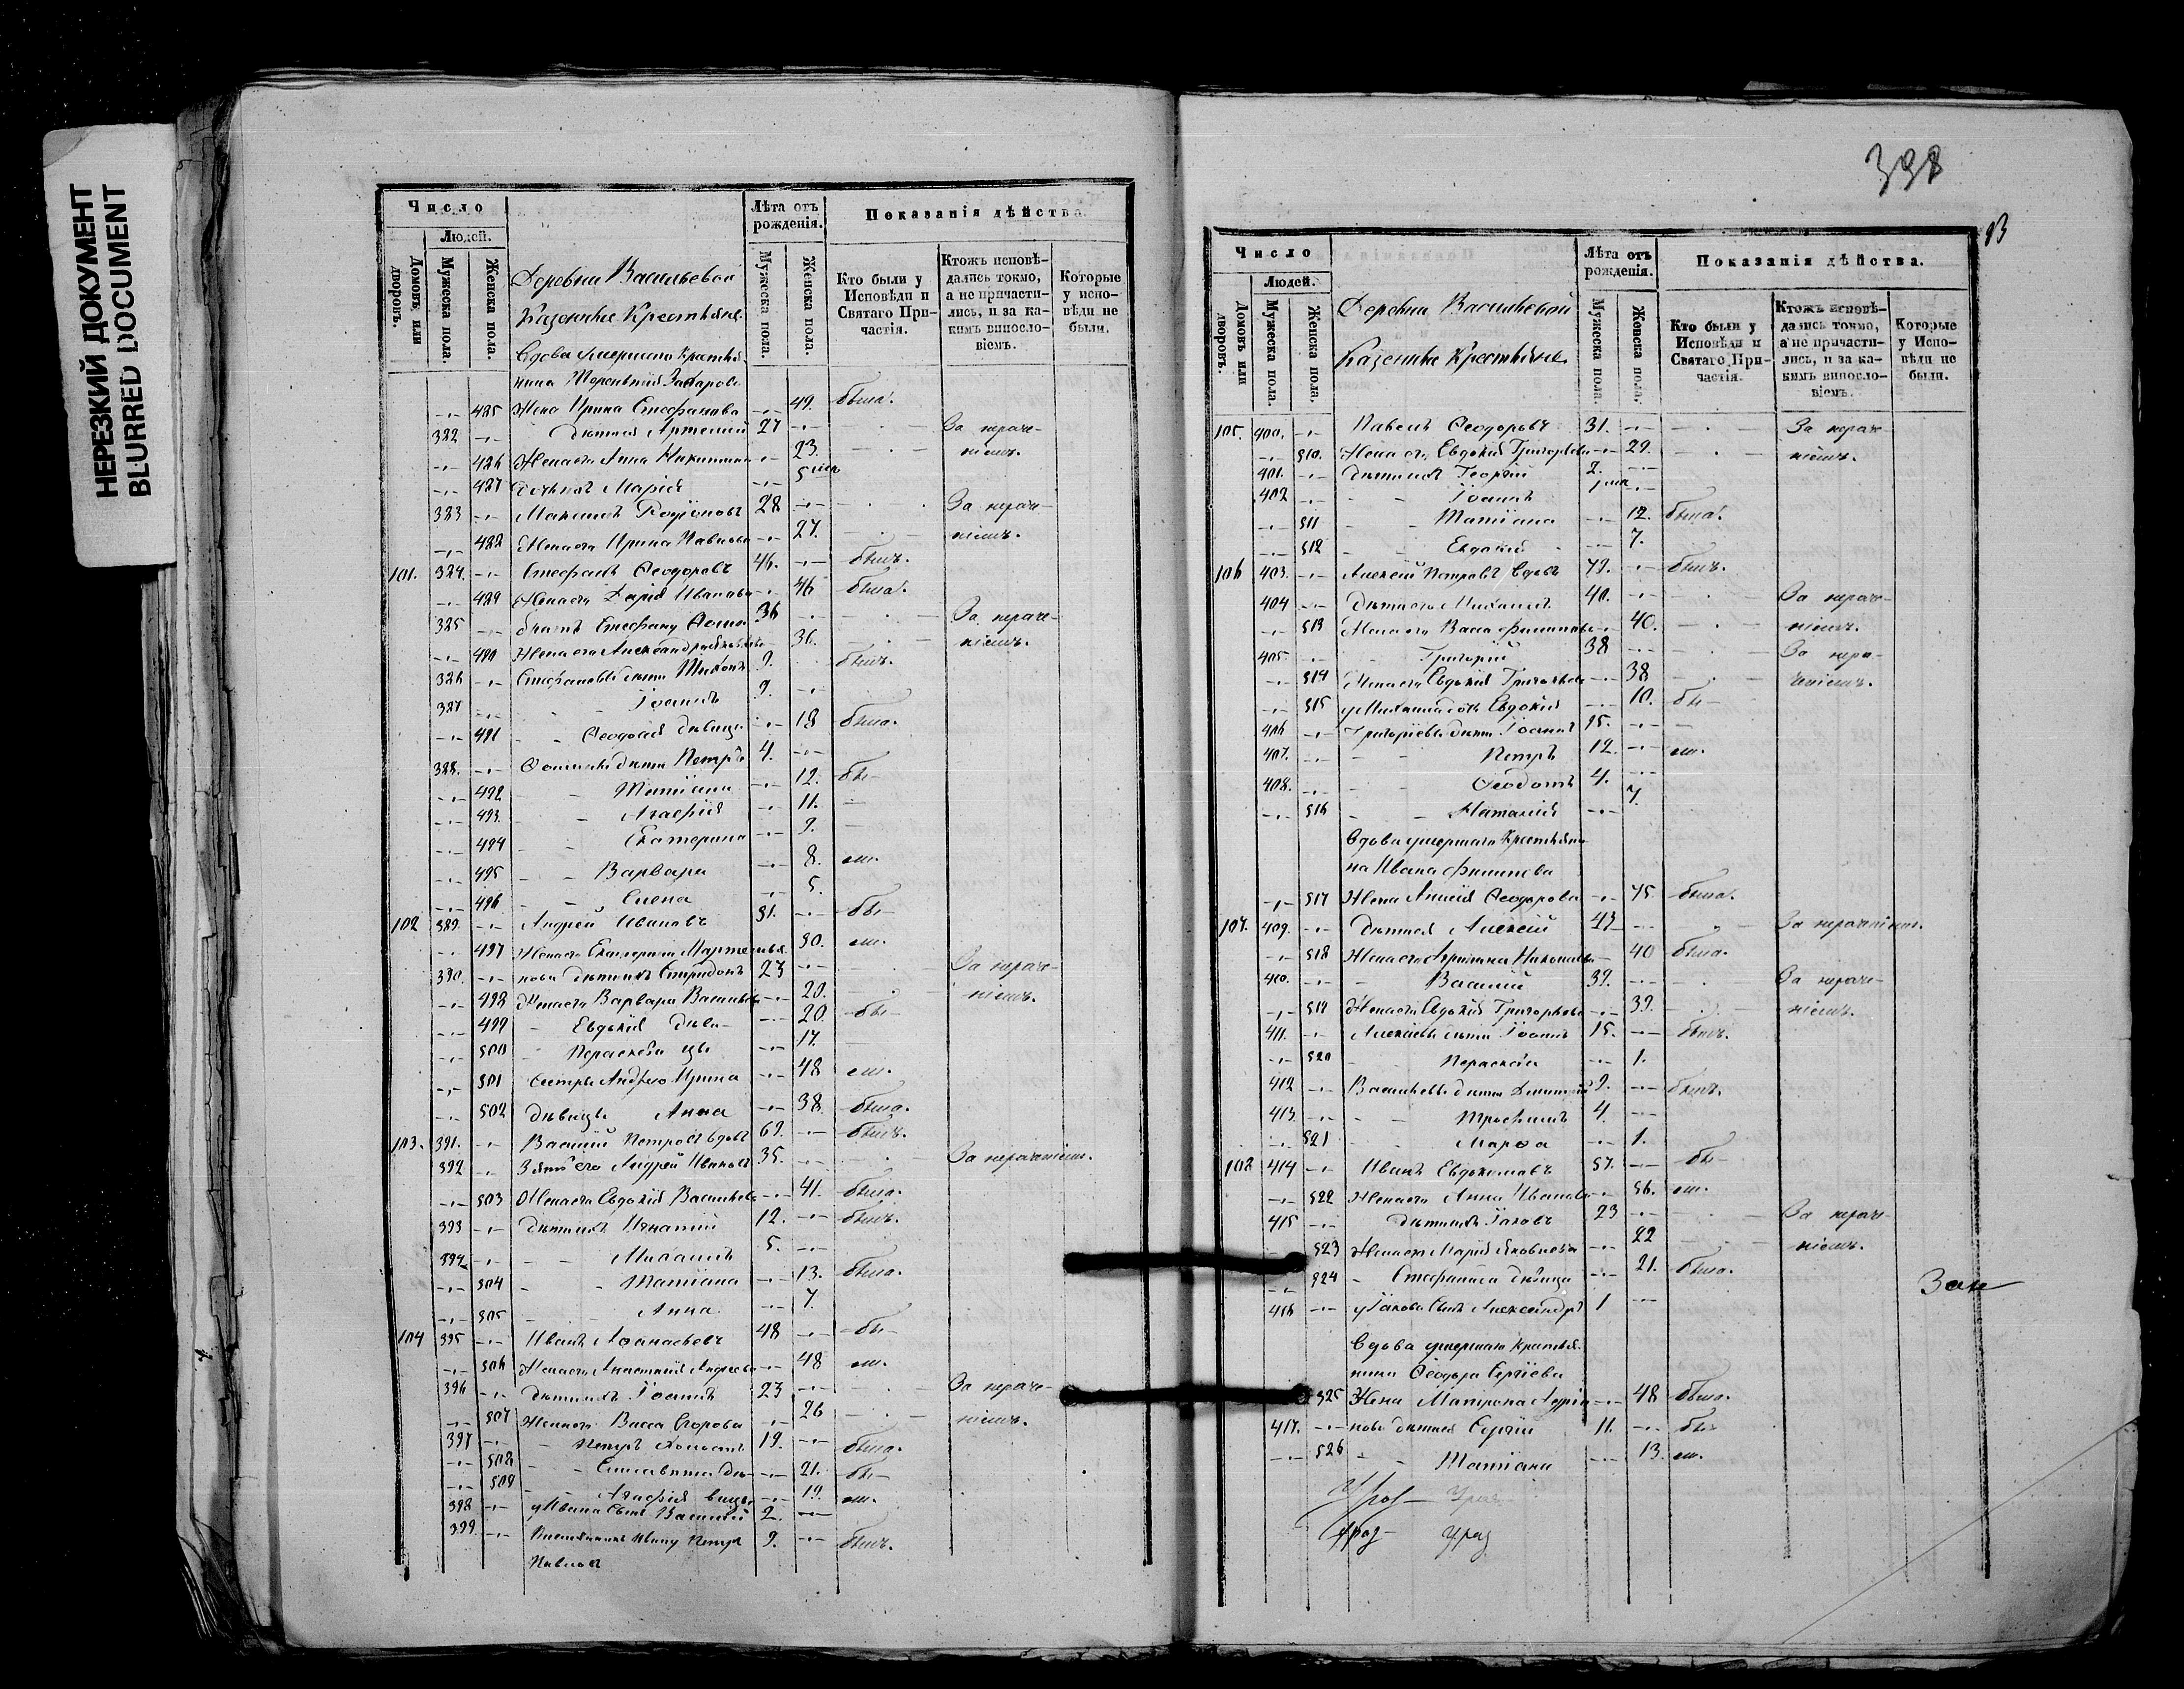 НЕРЕЗКИЙ ДОКУМЕНТ
BLURRED DOCUMENT
Число
Людей.
Домовъ или дворовъ.
Мужеска пола.
Женска пола.
Деревни Васильевой
Казенные Крестьяне
Лѣта отъ рожденія.
Мужеска пола.
Женска пола.
Показанія дѣйства.
Кто были у Исповѣди и Святаго Причастія.
Ктожъ исповѣдались токмо, а не причастились, и за какимъ винословіемъ.
Которые у исповѣди не были.
Вдова умершаго Крестья-
нина Захарова
-,- 485 Жена Ирина Стефанова -,- 49. была.
382 -,- Дѣти ея Артемий 27 -,- За нераче-
-,- 486 Жена его Анна Никитина -,- 23. ніемъ.
-,- 487 Дочь ихъ Марія -,- 5
383 -,- Родіоновъ 28 -,- За нераче-
-,- 488 Жена его Ирина Павлова -,- 27. ніемъ.
101. 384. -,- Стефанъ Ѳеодоровъ 46. -,- былъ.
-,- 489 Жена его Дарія Иванова -,- 46 была.
385 -,- братъ Стефану Ѳома 36 -,- За нераче-
-,- 490 Жена его Александра -,- 36. ніемъ.
386 -,- Стефановы дѣти Тихонъ 9. былъ.
387 -,- Іоаннъ 9. -,-
-,- 491 Ѳеодосія дѣвица -,- 18 была.
388. -,- Ѳомины дѣти Петръ 4. -,-
-,- 492 Татіана -,- 12. бы-
-,- 493. Агафія -,- 11. —
-,- 494 Екатерина -,- 9. —
-,- 495 Варвара -,- 8. ли.
-,- 496 Елена -,- 5.
102 389. -,- Андрей Ивановъ 51. -,- бы-
-,- 497 Жена его Екатерина Мартемья- -,- 50. ли.
390. -,- нова дѣти ихъ Спиридонъ 23 -,- За нераче-
-,- 498 Жена его Варвара Васильева -,- 20. ніемъ.
-,- 499 Евдокія дѣви- -,- 20. бы-
-,- 500 Параскева цы -,- 17. —
-,- 501 Сестры Андрею Ирина -,- 48 ли.
-,- 502 дѣвицы Анна -,- 38. была.
103. 391. -,- Василій Петровъ вдовъ 69. -,- былъ.
392 -,- Зять его Андрей Ивановъ 35. -,- За нераченіемъ.
-,- 503 Жена его Евдокія Васильева -,- 41. была.
393 -,- Дѣти ихъ Игнатій 12. -,- былъ.
394 -,- Михаилъ 5. -,-
-,- 504 Татіана -,- 13. была.
-,- 505 Анна -,- 7.
104 395 -,- Иванъ Аѳанасьевъ 48 -,- бы-
-,- 506 Жена его Анастасія Андреева -,- 48 ли.
396 -,- Дѣти ихъ Іоаннъ 23 -,- За нераче-
-,- 507 Жена его Васса Егорова -,- 26 ніемъ.
397 -,- Петръ холостъ 19. -,-
-,- 508 Елисавета дѣ- -,- 21. бы-
-,- 509 Агафія вицы -,- 19. ли.
398 -,- у Ивана сынъ Василій 2. -,-
399. -,- Ивану Петръ 9. -,- былъ.
Павловъ
398
Число
Людей.
Домовъ или дворовъ.
Мужеска пола.
Женска пола.
Деревни Васильевой
Казенные Крестьяне
Лѣта отъ рожденія.
Мужеска пола.
Женска пола.
Показанія дѣйства.
Кто были у Исповѣди и Святаго Причастія.
Ктожъ исповѣдались токмо, а не причастились, и за какимъ винословіемъ.
Которые у Исповѣди не были.
105. 400. -,- Павелъ Ѳеодоровъ 31. -,- За нераче-
-,- 510. Жена его Евдокія Григорьева -,- 29. ніемъ.
401. -,- Дѣти ихъ Георгій 2. -,-
402 -,- Іоаннъ -,-
-,- 511 Татіана -,- 12. была.
-,- 512 Евдокія -,- 7.
106 403. -,- Алексій Петровъ вдовъ 72. -,- былъ.
404 -,- Дѣти его Михаилъ 40. -,- За нераче-
-,- 513 Жена его Васса Филипова -,- 40. ніемъ.
405. -,- Григорій 38 -,- За нера-
-,- 514 Жена его Евдокія Григорьева -,- 38 ченіемъ.
-,- 515 у Михаила дочь Евдокія -,- 10. бы-
406 -,- Григоріевы дѣти Іоаннъ 15. -,- —
407. -,- Петръ 12. -,- ли.
408. -,- Ѳеодотъ 4. -,-
-,- 516 Наталія -,- 7.
Вдова умершаго Крестьяни-
на Ивана Филипова
-,- 517 Жена Анисія Ѳеодорова -,- 75. была.
107. 409. -,- Дѣти ея Алексій 43 -,- За нераченіемъ.
-,- 518 Жена его Николаева -,- 40 была.
410. -,- Василій 39. -,- За нераче-
-,- 519 Жена его Евдокія Григорьева -,- 39. ніемъ.
411. -,- Алексіевы дѣти Іоаннъ 15. -,- былъ.
-,- 520 Параскева -,- 1.
412 -,- Васильевы дѣти Димитрій 9. -,- былъ.
413. -,- Трофимъ 4. -,-
-,- 521 Марѳа -,- 1.
108 414 -,- Иванъ Евдокимовъ 57. -,- бы-
-,- 522 Жена его Анна Иванова -,- 56. ли.
415 -,- Дѣти ихъ Іаковъ 23 -,- За нераче-
523 Жена его Марія Яковлева -,- 22 ніемъ.
-,- 524 Стефанида дѣвица -,- 21. была.
416 -,- у Іакова сынъ Александръ 1 -,-
Вдова умершаго Крестья-
нина Ѳеодора Сергіева
525 Жена Матрона Андрія- -,- 48 была.
417. -,- нова дѣти ея Сергій 11. -,- бы-
-,- 526 Татіана -,- 13. ли.